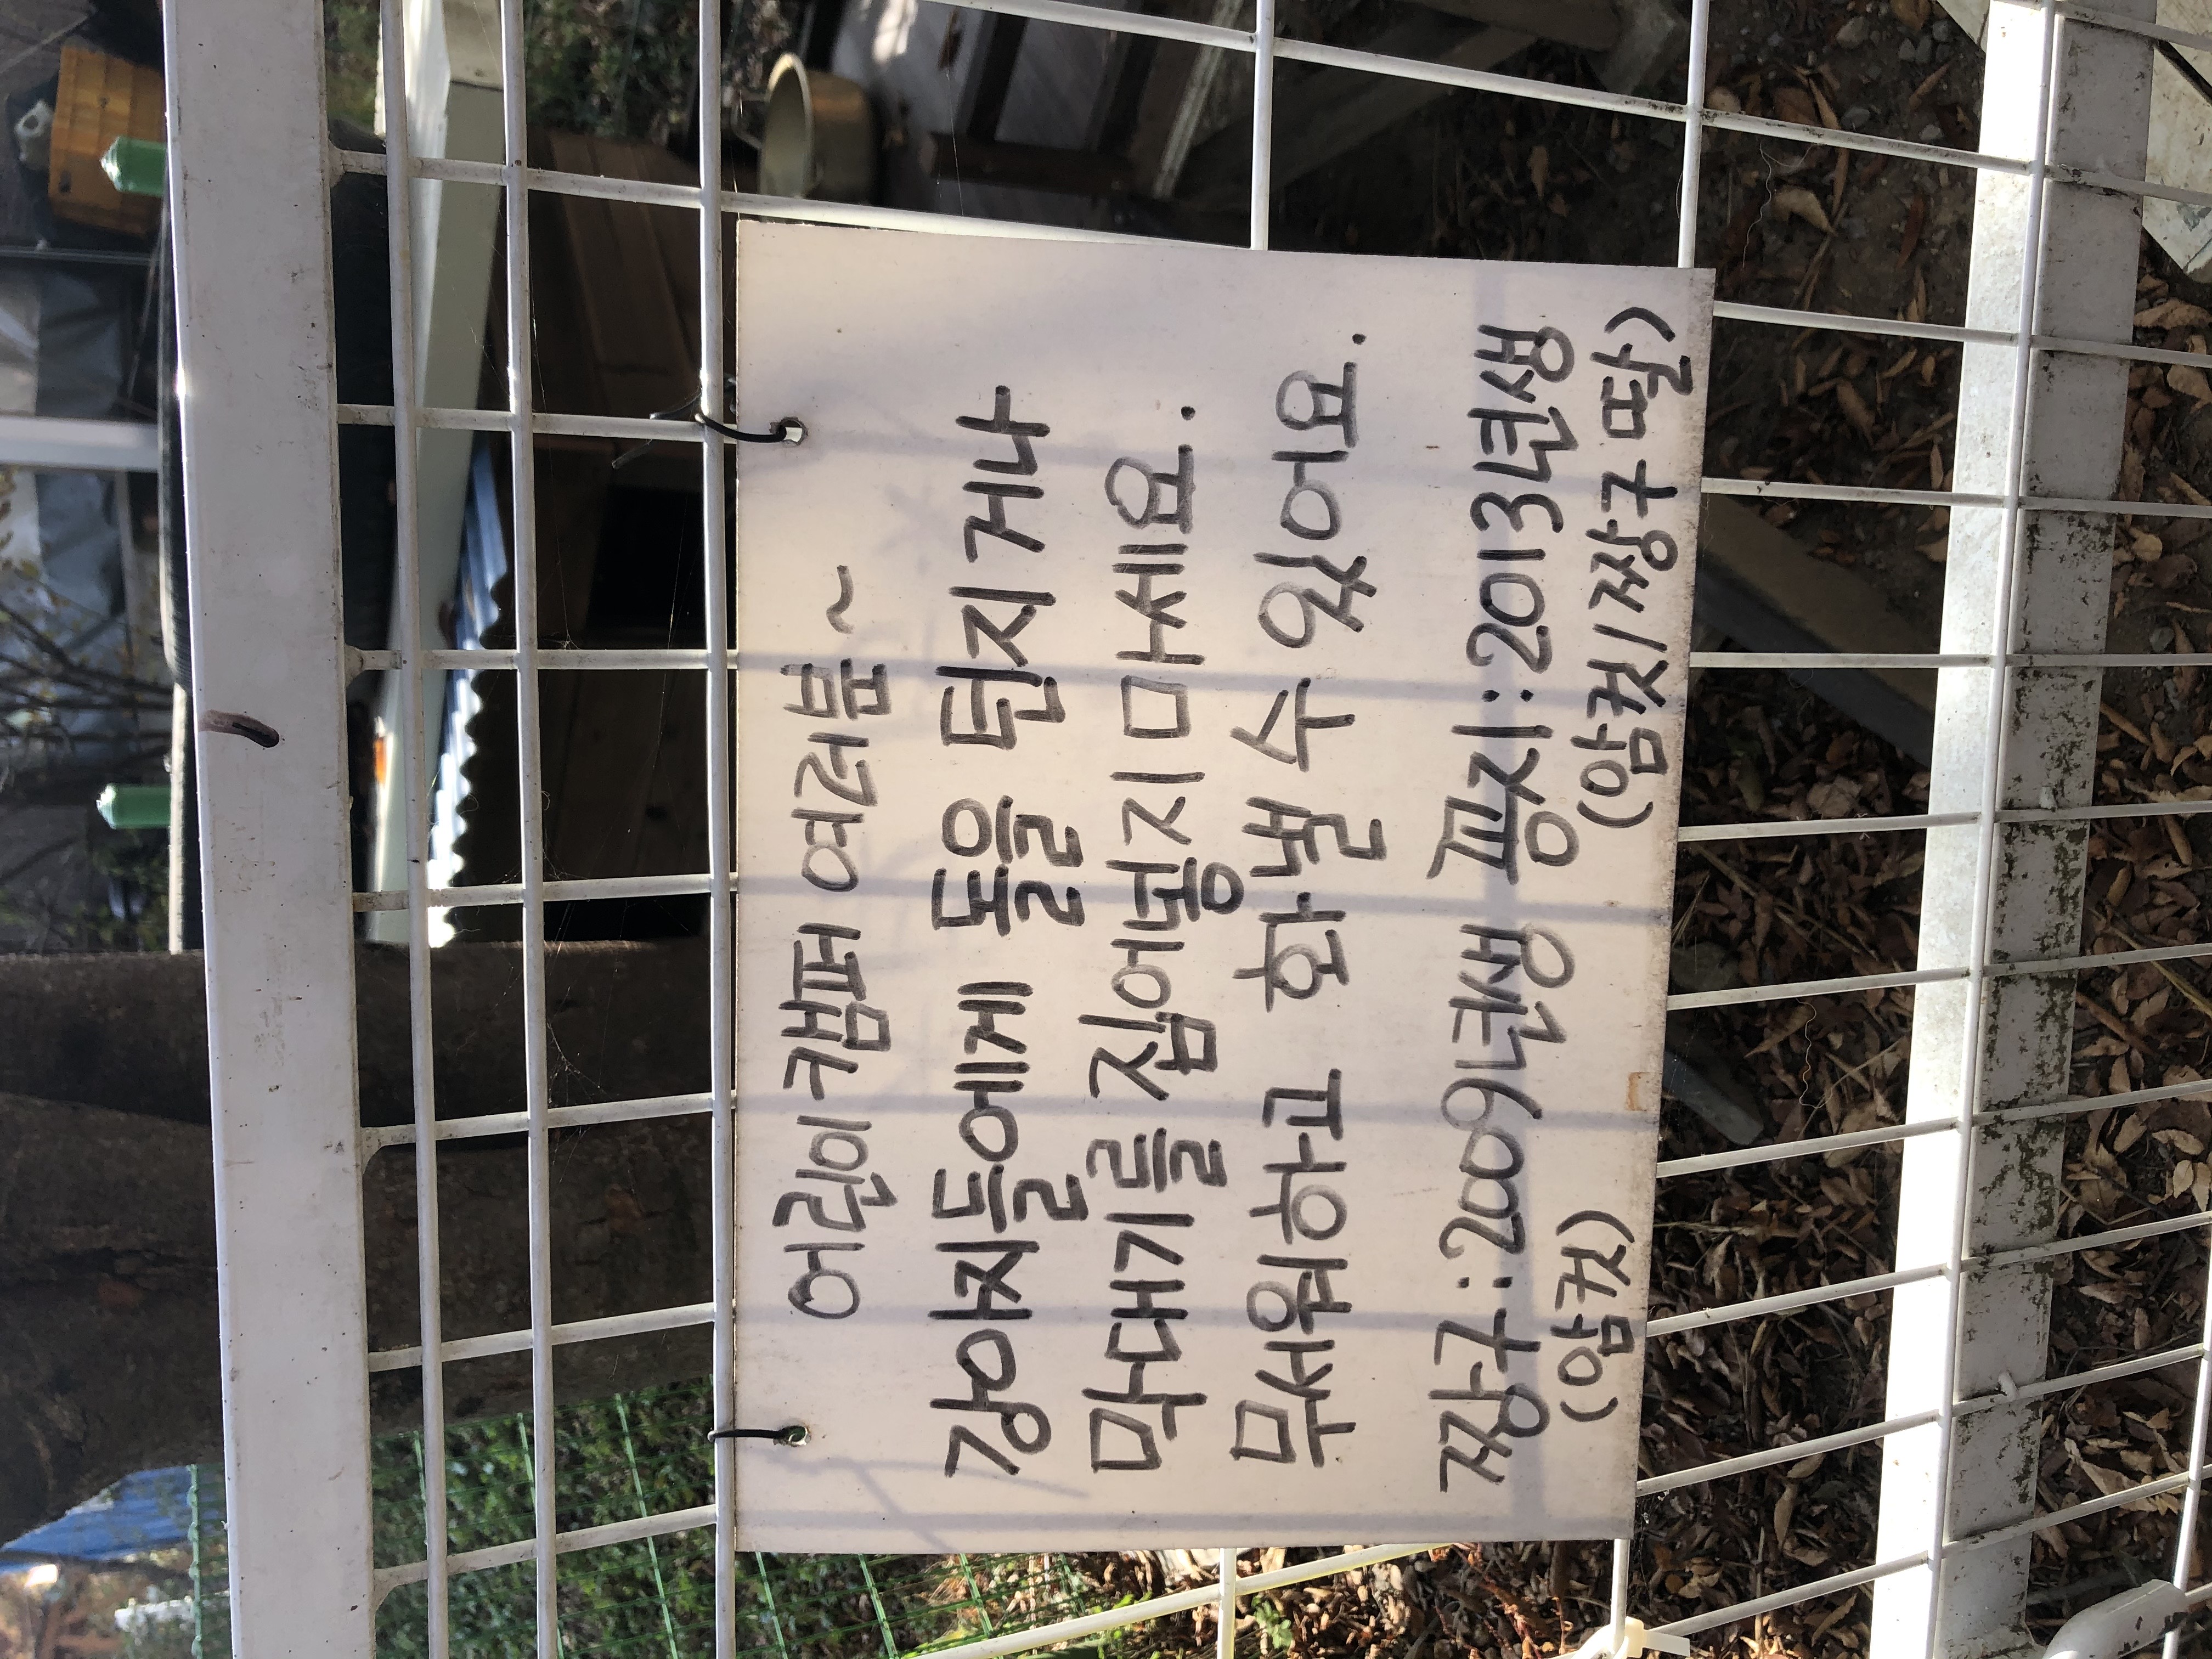 어린이 캠퍼 여러분~
강아지들에게 돌을 던지거나
막대기를 집어넣지 마세요.
무서워하고 화낼 수 있어요.
짱구:2009년생 퐁지:2013년생
(암컷) (암컷/짱구 딸)